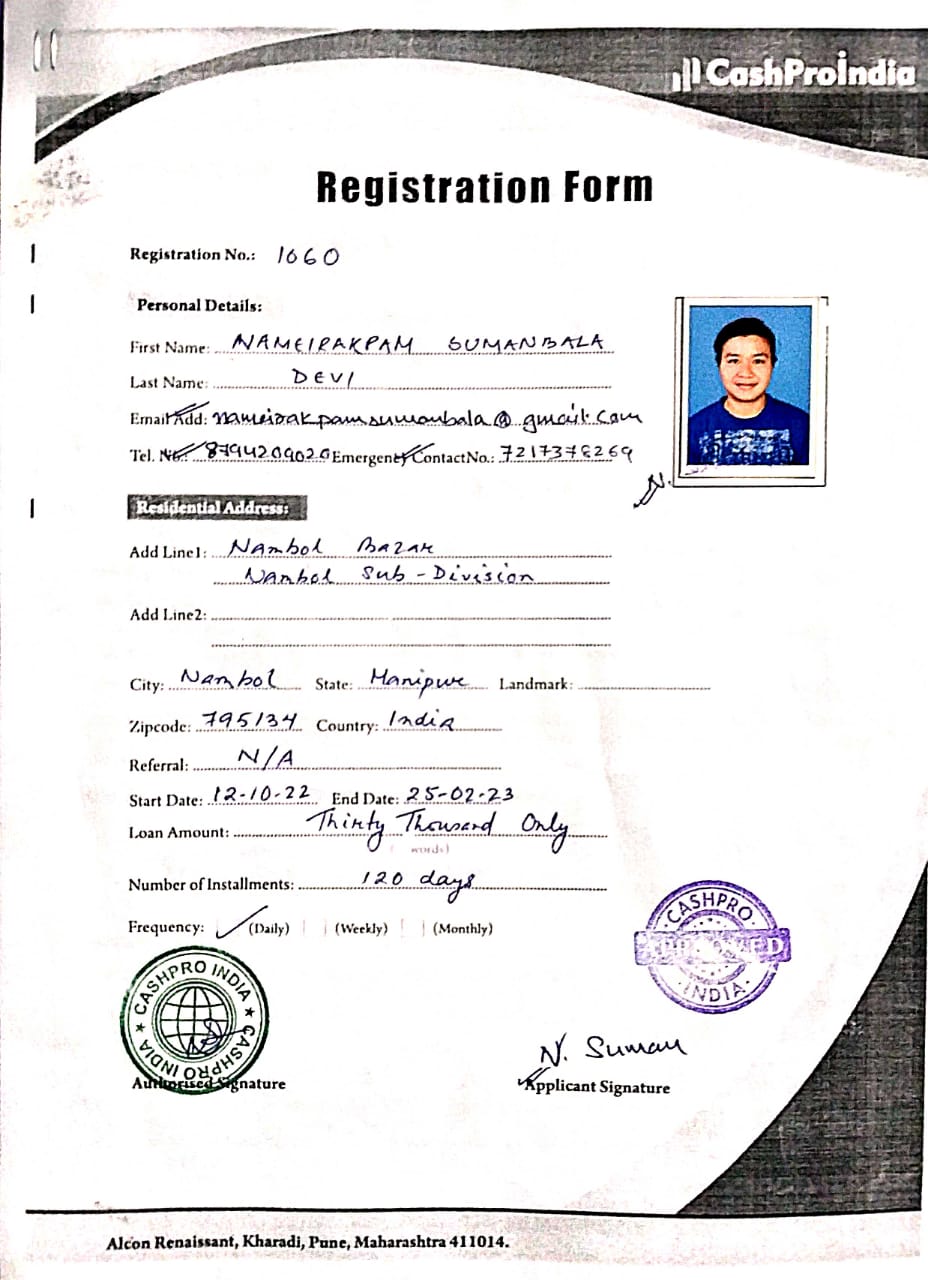 CashProIndia
Registration Form
Registration No.: 1060
Personal Details:
First Name: NAMEIRAKPAM SUMANBALA
Last Name: DEVI
Email Add: nameirakpamsumanbala@gmail.com
Tel. No.: 8794209020 Emergency Contact No.: 7217378269
N.
Residential Address:
Add Line1: Nambol Bazar
Nambol Sub-Division
Add Line2:
City: Nambol State: Manipur Landmark:
Zipcode: 795134 Country: India
Referral: N/A
Start Date: 12-10-22 End Date: 25-02-23
Loan Amount: Thirty Thousand Only
words)
Number of Installments: 120 days
Frequency: (Daily) (Weekly) (Monthly)
CASHPRO
APPROVED
INDIA
CASHPRO INDIA
CASHPRO INDIA
N. Suman
Authorised Signature Applicant Signature
Alcon Renaissant, Kharadi, Pune, Maharashtra 411014.